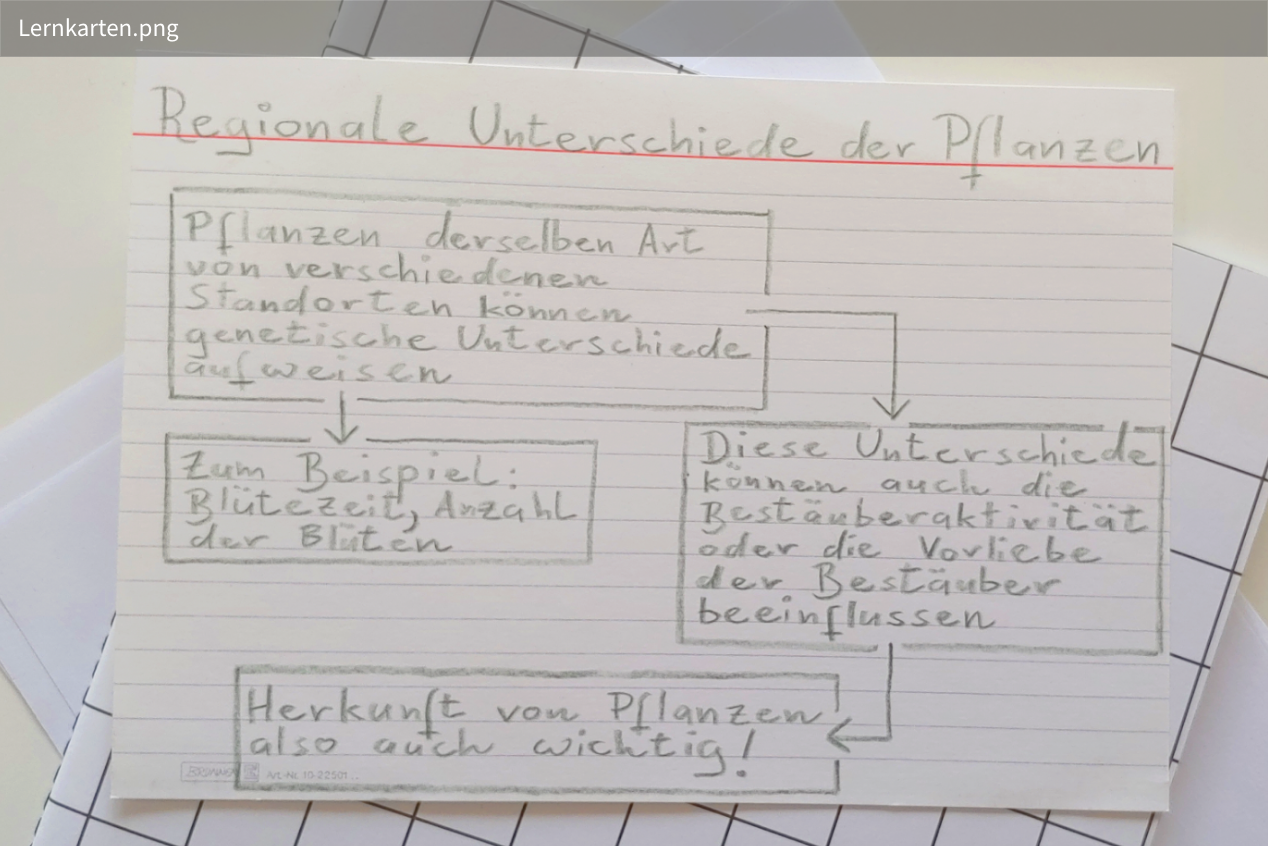 Lernkarten.png
Regionale Unterschiede der Pflanzen
Pflanzen derselben Art
von verschiedenen
Standorten können
genetische Unterschiede
aufweisen
Zum Beispiel:
Blütezeit, Anzahl
der Blüten
Diese Unterschiede
können auch die
Bestäuberaktivität
oder die Vorliebe
der Bestäuber
beeinflussen
Herkunft von Pflanzen
also auch wichtig!
Art.-Nr. 10-22501